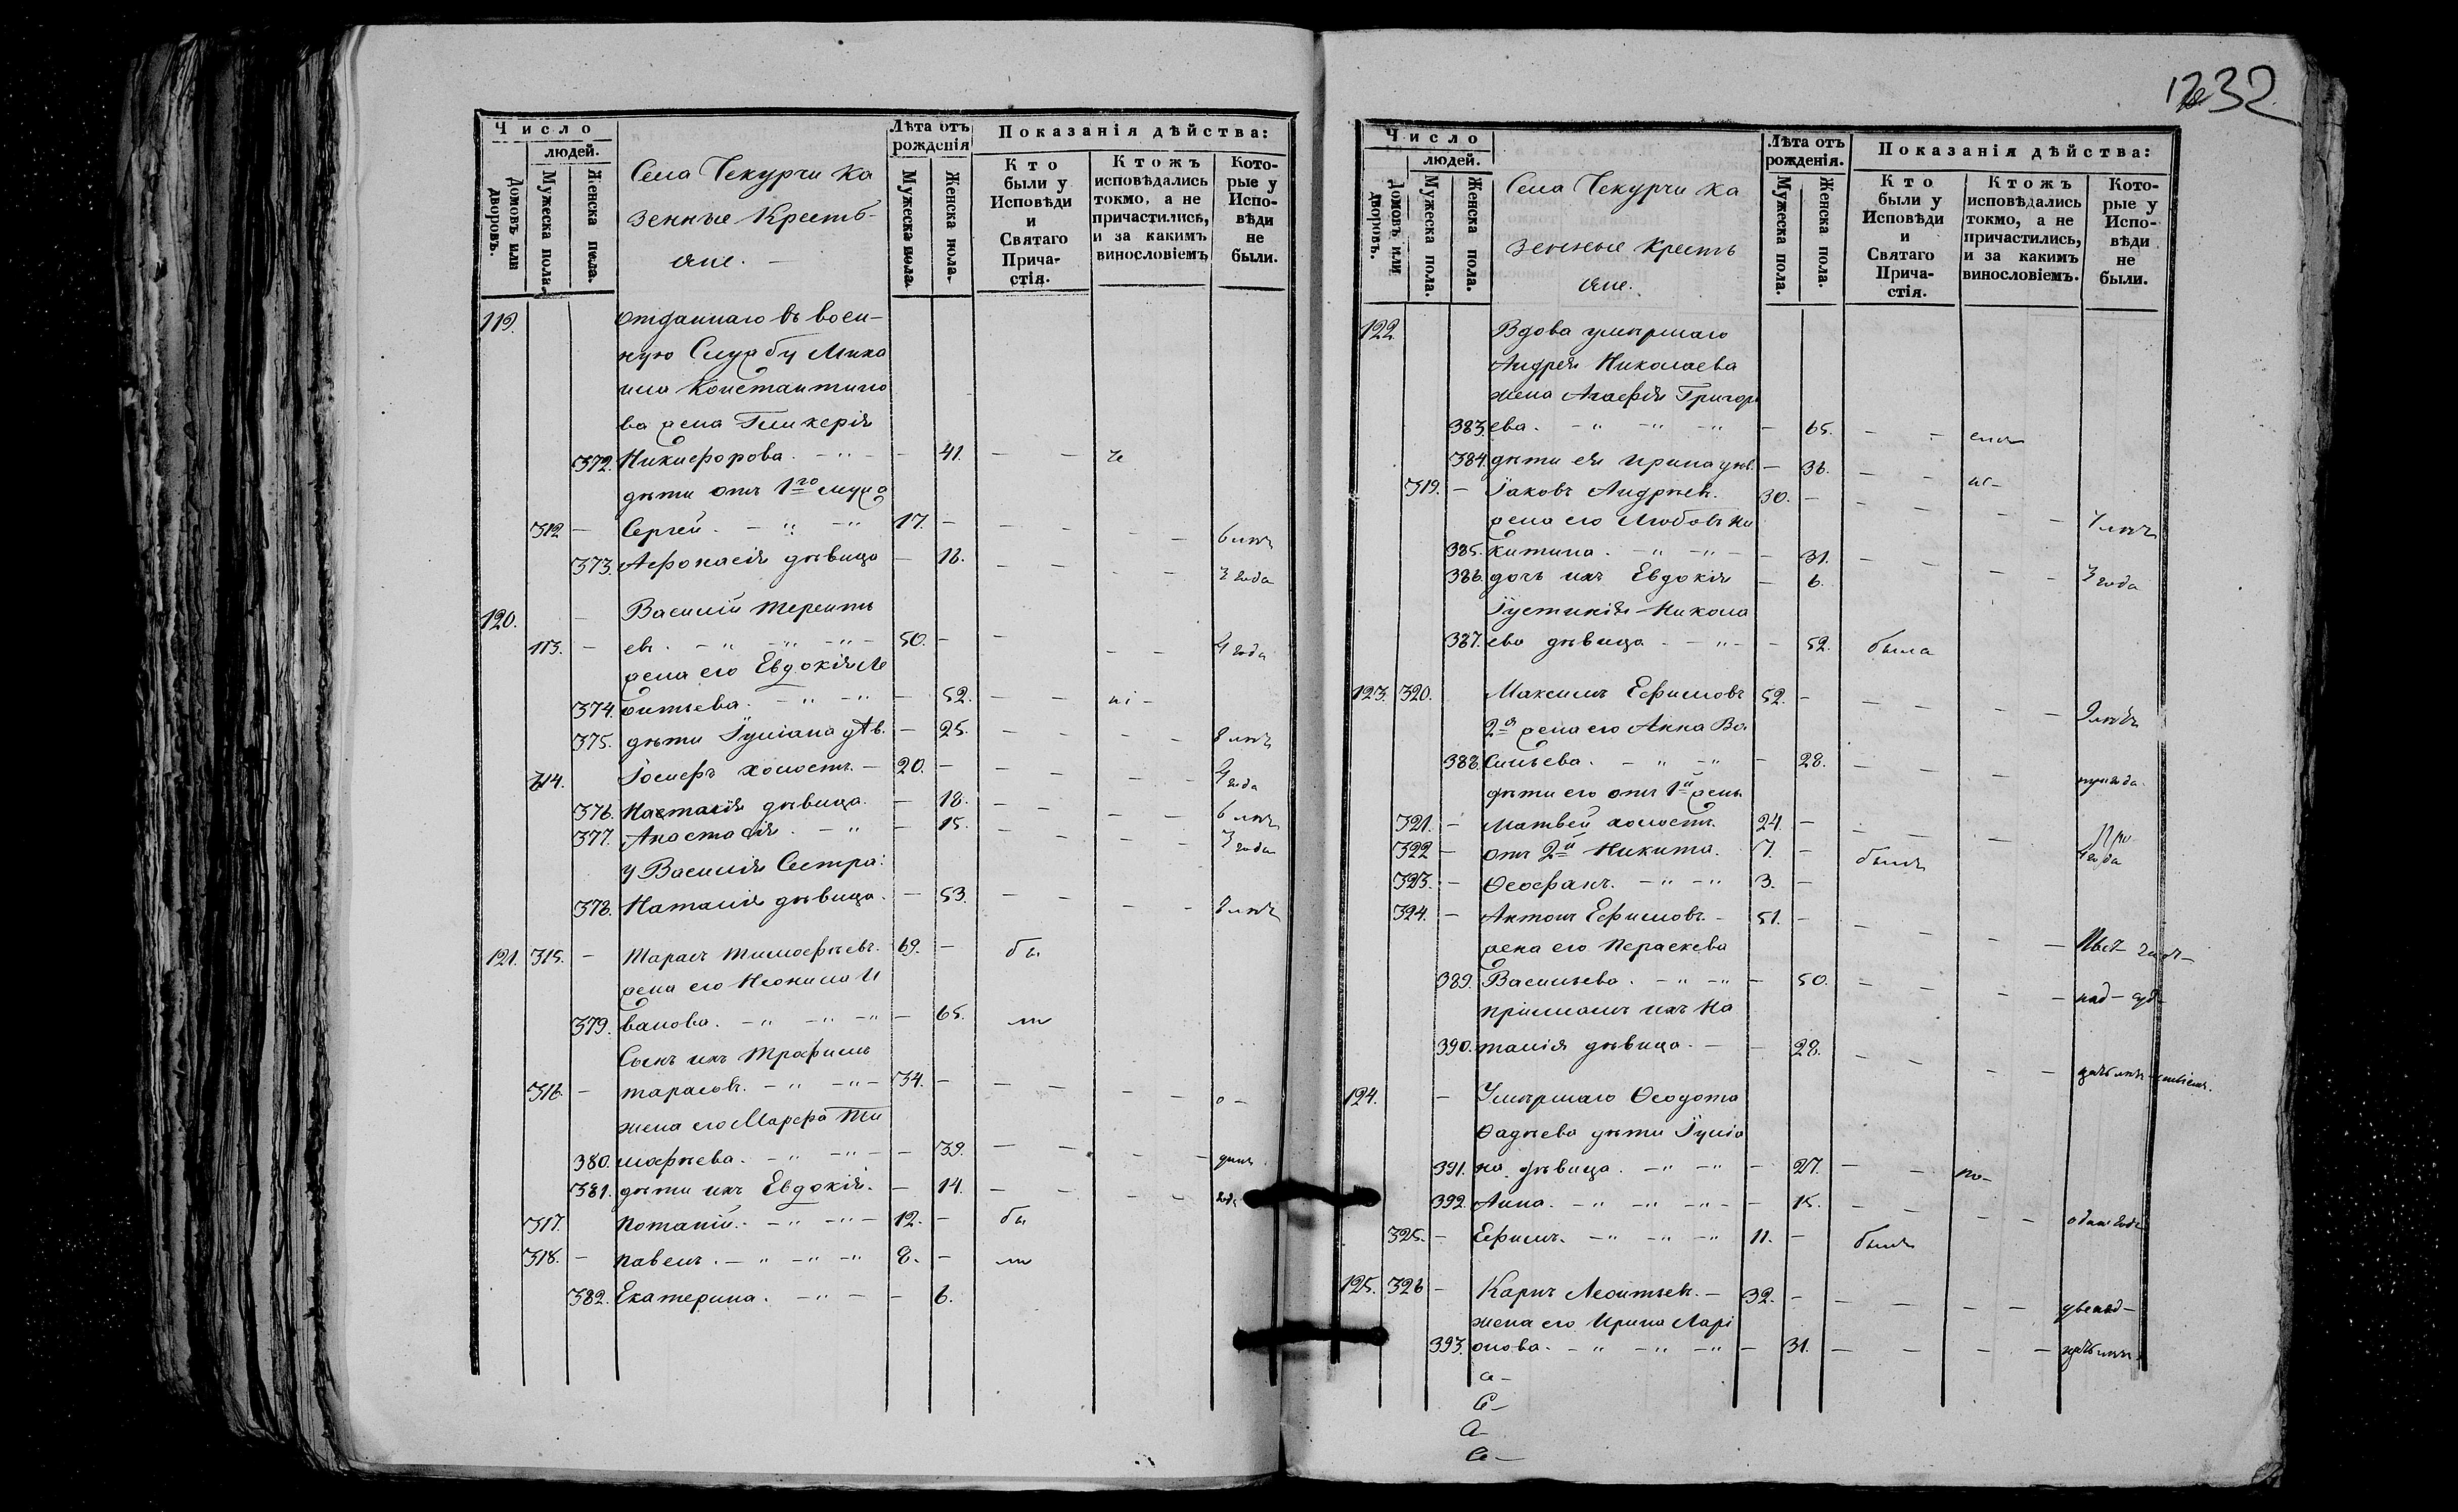 1232
Число
людей.
Домовъ или дворовъ.
Мужеска пола.
Женска пола.
Села Чекурчи Ка
зенные Кресть-
яне. —
Лѣта отъ рожденія
Мужеска пола.
Женска пола.
Показанія дѣйства:
Кто были у Исповѣди и Святаго Прича-стія.
Ктожъ исповѣдались токмо, а не причастились, и за какимъ винословіемъ
Кото-рые у Испо-вѣди не были.
119. Отданнаго въ воен-
ную Службу Миха
ила Константино
ва жена Гликерія
372. Никифорова. 41.
дѣти отъ 1го мужа
312 Сергей. 17. 6 лѣтъ
373. Афонасія дѣвица 18. 3 года
120. Василій Теренть
113. евъ. 50. 4 года
жена его Евдокія Ле
374. онтьева. 52.
375. дѣти Іуліана дѣв. 25. 8 лѣтъ
314. Іосифъ холостъ. 20. 4 года
376. Настасія дѣвица. 18. 6 лѣтъ
377. Анастасія. 15. 3 года
у Василія Сестра:
378. Наталія дѣвица. 53. 8 лѣтъ
121. 315. Тарасъ Тимофѣевъ. 69. бы
жена его Неонила И
379. ванова. 65. ли
Сынъ ихъ Трофимъ
316. Тарасовъ. 34. о
жена его Марфа Ти
380. мофѣева. 39. динъ
381. дѣти ихъ Евдокія. 14. годъ
317. Потапій. 12. бы
318. Павелъ. 8. ли
382. Екатерина. 6.
Число
людей.
Домовъ или дворовъ.
Мужеска пола.
Женска пола.
Села Чекурчи Ка
зенные Кресть
яне.
Лѣта отъ рожденія.
Мужеска пола.
Женска пола.
Показанія дѣйства:
Кто были у Исповѣди и Святаго Прича-стія.
Ктожъ исповѣдались токмо, а не причастились, и за какимъ винословіемъ.
Кото-рые у Испо-вѣди не были.
122. Вдова умѣршаго
Андрея Николаева
жена Агафія Григорь
383. ева. 65.
384. дѣти ея Ирина дѣв. 36.
319. Іаковъ Андрѣев. 30. лѣтъ
жена его Любовь Ни
385. китина. 31. 3 года
386. дочь ихъ Евдокія 6.
Іустинія Никола
387. ева дѣвица 52. была
123. 320. Максимъ Ефимовъ 52. 9 лѣтъ
2я жена его Анна Ва
388. сильева. 28. три года
дѣти его отъ 1й жены
321. Матвей холостъ. 24. года
322 отъ 2й Никита. 7. былъ
323. Ѳеофанъ. 3.
324. Антонъ Ефимовъ. 51.
жена его Параскева
389. Васильева. 50.
пріимышъ ихъ На
390. талія дѣвица. 28.
124. Умѣршаго Ѳеодота
Ѳадѣева дѣти Іуліа
391. на дѣвица. 27.
392. Анна. 15. одинъ годъ
325. Ефимъ. 11. былъ
125. 326 Карпъ Леонтьевъ. 32.
жена его Ирина Ларі
393. онова. 31.